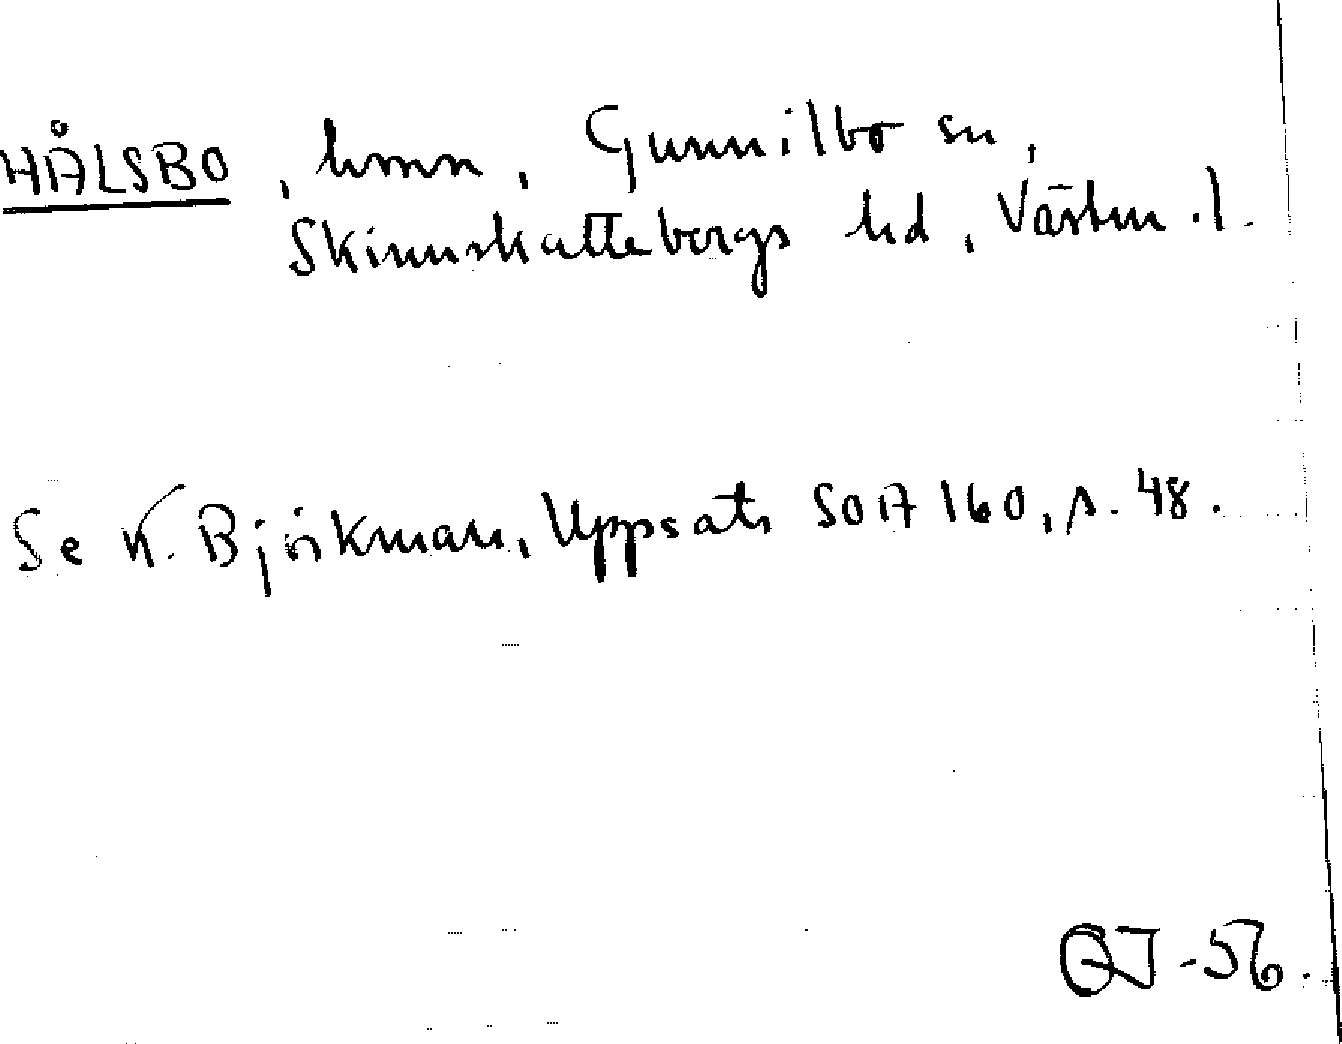 HÅLSBO, hmn, Gunnilbo sn,
Skinnskattebergs hd, Västm.l.
Se K. Björkman, Uppsats SOA 160, s. 48.
-56.